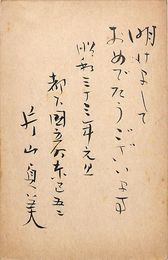 明けまして
おめでたうございます
昭和三十三年元旦
都下國立町東区五二
片山貞美